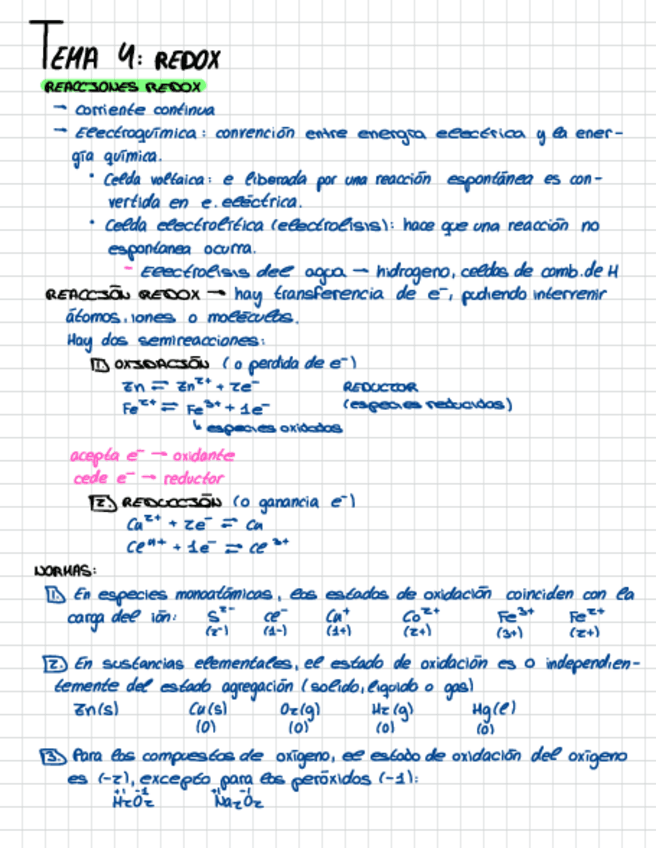 TEMA 4: REDOX
REACCIONES REDOX
→ corriente continua
→ Electroquímica: convención entre energía eléctrica y la ener-
gía química.
• Celda voltaica: e liberada por una reacción espontánea es con-
vertida en e. eléctrica.
• Celda electrolítica (electrolisis): hace que una reacción no
espontanea ocurra.
- Electrolisis del agua → hidrogeno, celdas de comb. de H
REACCIÓN REDOX → hay transferencia de e⁻, pudiendo intervenir
átomos, iones o moléculas.
Hay dos semireacciones:
1. OXIDACIÓN (o perdida de e⁻)
Zn ⇌ Zn²⁺ + 2e⁻ REDUCTOR
Fe²⁺ ⇌ Fe³⁺ + 1e⁻ (especies reducidas)
↳ especies oxidadas
acepta e⁻ → oxidante
cede e⁻ → reductor
2. REDUCCIÓN (o ganancia e⁻)
Cu²⁺ + 2e⁻ ⇌ Cu
Ce⁴⁺ + 1e⁻ ⇌ Ce³⁺
NORMAS:
1. En especies monoatómicas, los estados de oxidación coinciden con la
carga del ión: S²⁻ Cl⁻ Cu⁺ Co²⁺ Fe³⁺ Fe²⁺
(2-) (1-) (1+) (2+) (3+) (2+)
2. En sustancias elementales, el estado de oxidación es 0 independien-
temente del estado agregación (solido, liquido o gas)
Zn(s) Cu(s) O₂(g) H₂(g) Hg(l)
(0) (0) (0) (0)
3. Para los compuestos de oxígeno, el estado de oxidación del oxígeno
es (-2), excepto para los peróxidos (-1):
+1 -1 +1 -1
H₂O₂ Na₂O₂